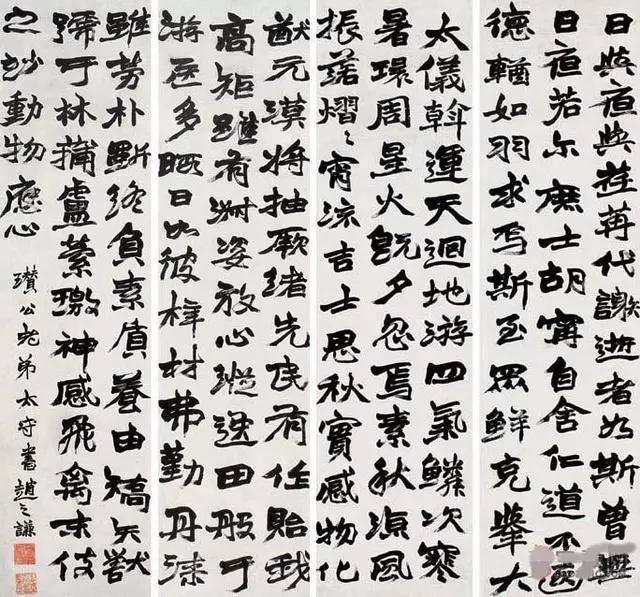 日與夜與荏苒代謝逝者如斯曾無
日夜若尔庶士胡寧自舍仁道不遐
德輶如羽求焉斯至眾鮮克舉大
太儀斡運天迴地游四氣鱗次寒
暑環周星火既夕忽焉素秋涼風
振蘀熠〻宵流吉士思秋實感物化
猷元漠將抽厥緒先民有作貽我
高矩雖有淑姿放心縱逸田般于
游居多暇日如彼梓材弗勤丹漆
雖勞朴斲終負素質養由矯矢獸
號于林蒲盧縈繳神感飛禽末伎
之妙動物應心
瓚公老弟太守書趙之謙